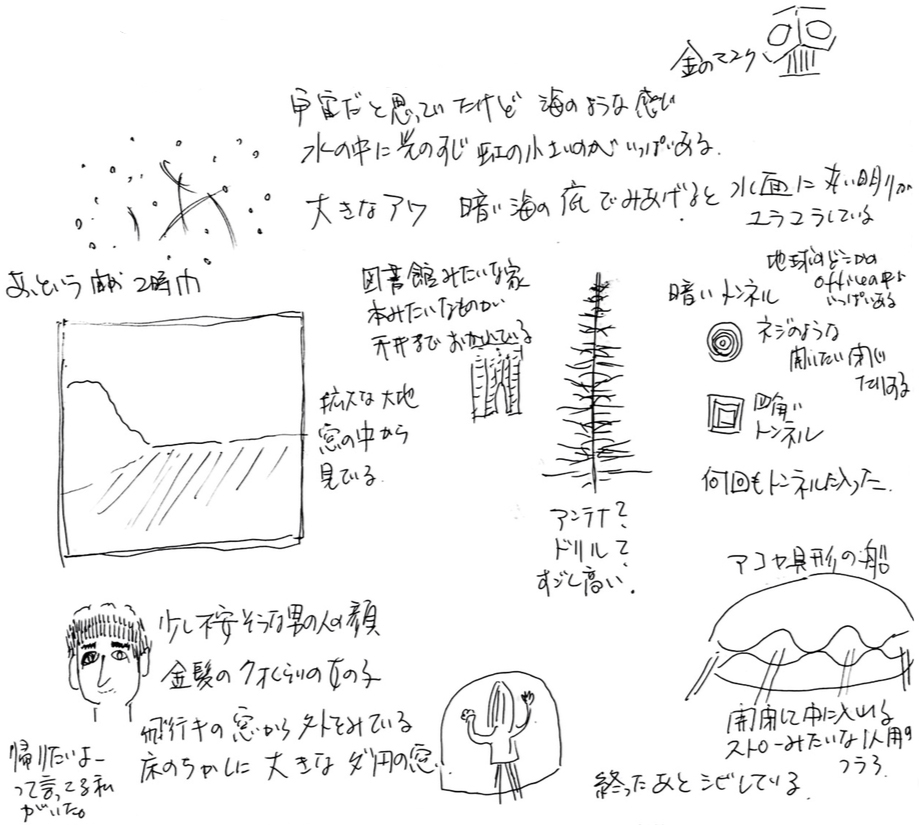 金のマスク
宇宙だと思っていたけど 海のような感じ
水の中に光のすじ 虹の小さいのがいっぱいある.
大きなアワ 暗い海の底でみあげると 水面に 丸い明りが
ユラユラしている
あっという間の2時間
図書館みたいな家
本みたいなものが
天井までおかれている
広大な大地
窓の中から
見ている.
アンテナ?
ドリル?
すごく高い.
暗いトンネル
地球のどこかの
いっぱいある
ネジのような
開いたり閉じ
たりする
四角い
トンネル
何回もトンネルに入った.
アコヤ貝形の船
開閉して中に入れる
ストローみたいな1人用の
イス?
少し不安そうな男の人の顔
金髪の 7才くらいの女の子
飛行キの窓から 外をみている
床のちかくに 大きな 円の窓.
帰りたいよー
って言ってる私
がいた。
終ったあとシビレている.